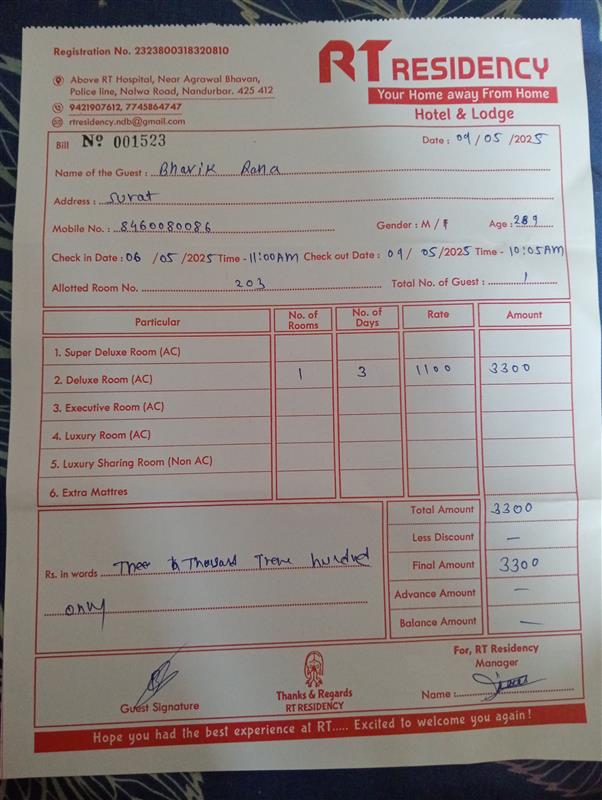 Registration No. 2323800318320810
RT RESIDENCY
Your Home away From Home
Hotel & Lodge
Above RT Hospital, Near Agrawal Bhavan,
Police line, Nalwa Road, Nandurbar. 425 412
9421907612, 7745864747
rtresidency.ndb@gmail.com
Bill No 001523 Date : 09/05/2025
Name of the Guest : Bhavik Rana
Address : Surat
Mobile No. : 8460080086 Gender : M / F Age :
Check in Date : 06 /05 /2025 Time - 11:00AM Check out Date : 09/ 05/2025 Time - 10:05AM
Allotted Room No. 203 Total No. of Guest : 1
Particular No. of Rooms No. of Days Rate Amount
1. Super Deluxe Room (AC)
2. Deluxe Room (AC) 1 3 1100 3300
3. Executive Room (AC)
4. Luxury Room (AC)
5. Luxury Sharing Room (Non AC)
6. Extra Mattres
Total Amount 3300
Less Discount —
Final Amount 3300
Advance Amount —
Balance Amount —
Rs. in words Thousand hundred
only
For, RT Residency
Manager
Name :
Guest Signature
Thanks & Regards
RT RESIDENCY
Hope you had the best experience at RT..... Excited to welcome you again!